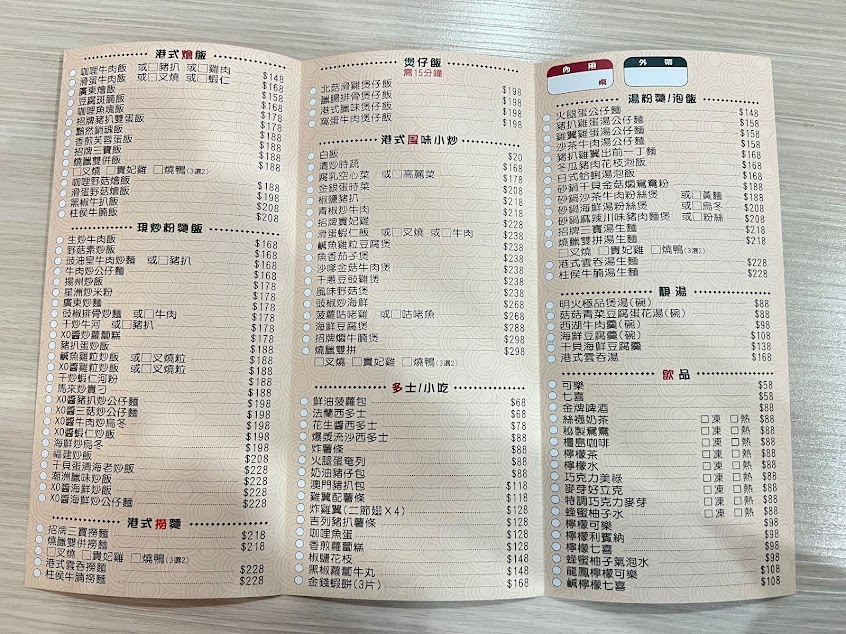 港式燴飯
咖哩牛肉飯 或□豬扒 或□雞肉 $148
滑蛋牛肉飯 或□叉燒 或□蝦仁 $168
廣東燴飯 $158
豆腐斑腩飯 $168
咖哩魚塊飯 $178
招牌豬扒雙蛋飯 $188
黯然銷魂飯 $188
香煎芙蓉蛋飯 $188
招牌三寶飯
燒臘雙併飯 $188
□叉燒 □貴妃雞 □燒鴨(3選2)
咖哩野菇燴飯 $188
滑蛋野菇燴飯 $198
黑椒牛扒飯 $208
柱侯牛腩飯 $208
現炒粉麵飯
生炒牛肉飯 $168
野菇素炒飯 $168
豉油皇牛肉炒麵 或□豬扒 $168
牛肉炒公仔麵 $168
揚州炒飯 $178
星洲炒米粉 $178
廣東炒麵
豉椒排骨炒麵 或□牛肉 $188
干炒牛河 或□豬扒
XO醬炒蘿蔔糕
豬扒蛋炒飯 $188
鹹魚雞粒炒飯 或□叉燒粒 $188
XO醬雞粒炒飯 或□叉燒粒 $188
干炒蝦仁河粉
馬來炒貴刁
XO醬豬扒炒公仔麵 $198
XO醬三菇炒公仔麵
XO醬牛肉炒烏冬 $198
XO醬蝦仁炒飯
海鮮炒烏冬 $198
福建炒飯
干貝蛋清海老炒飯 $228
潮洲臘味炒飯 $228
XO醬海鮮炒飯 $228
XO醬海鮮炒公仔麵 $228
港式撈麵
招牌三寶撈麵 $218
燒臘雙併撈麵 $218
□叉燒 □貴妃雞 □燒鴨(3選2)
港式雲吞撈麵 $228
柱侯牛腩撈麵 $228
煲仔飯
需15分鐘
北菇滑雞煲仔飯 $198
臘腸排骨煲仔飯 $198
港式臘味煲仔飯 $198
窩蛋牛肉煲仔飯 $198
港式風味小炒
白飯 $20
清炒時蔬 $168
腐乳空心菜 或□高麗菜 $178
金銀蛋時菜 $208
椒鹽豬扒 $218
青椒炒牛肉 $218
招牌貴妃雞 $228
滑蛋蝦仁飯 或□叉燒 或□牛肉 $238
鹹魚雞粒豆腐煲 $238
魚香茄子煲 $238
沙嗲金菇牛肉煲 $238
干蔥豆豉雞煲 $238
風味野菇煲 $238
豉椒炒海鮮 $268
菠蘿咕咾雞 或□咕咾魚 $268
海鮮豆腐煲 $288
招牌燜牛腩煲 $298
燒臘雙拼 $298
□叉燒 □貴妃雞 □燒鴨(3選2)
多士/小吃
鮮油菠蘿包 $68
法蘭西多士 $68
花生醬西多士 $78
爆漿流沙西多士 $88
炸薯條 $88
火腿蛋奄列 $88
奶油豬仔包 $88
澳門豬扒包 $118
雞翼配薯條 $118
炸雞翼(二節翅X4) $128
吉列豬扒薯條 $128
咖哩魚蛋 $128
香煎蘿蔔糕 $128
椒鹽花枝 $148
黑椒蘿蔔牛丸 $148
金錢蝦餅(3片) $168
內用 桌
外帶
湯粉麵/泡飯
火腿蛋公仔麵 $148
豬扒雞蛋湯公仔麵 $158
雞翼雞蛋湯公仔麵 $158
沙茶牛肉湯公仔麵 $158
豬扒雞翼出前一丁麵 $168
冬瓜豬肉花枝泡飯 $168
日式蛤蜊湯泡飯 $168
砂鍋干貝金菇燜鴛鴦粉 $188
砂鍋沙茶牛肉粉絲煲 或□黃麵 $188
砂鍋海鮮湯粉絲煲 或□烏冬 $208
砂鍋麻辣川味豬肉麵煲 或□粉絲 $208
招牌三寶湯生麵 $218
燒臘雙拼湯生麵 $218
□叉燒 □貴妃雞 □燒鴨(3選2)
港式雲吞湯生麵 $228
柱侯牛腩湯生麵 $228
靚湯
明火極品煲湯(碗) $88
菇菇青菜豆腐蛋花湯(碗) $88
西湖牛肉羹(碗) $98
海鮮豆腐羹(碗) $108
干貝海鮮豆腐羹 $138
港式雲吞湯 $168
飲品
可樂 $58
七喜 $58
金牌啤酒 $88
絲襪奶茶 □凍 □熱 $88
秘製鴛鴦 □凍 □熱 $88
檀島咖啡 □凍 □熱 $88
檸檬茶 □凍 □熱 $88
檸檬水 □凍 □熱 $88
巧克力美祿 □凍 □熱 $88
麥芽好立克 □凍 □熱 $88
特調巧克力麥芽 □凍 □熱 $88
蜂蜜柚子水 □凍 □熱 $88
檸檬可樂 $98
檸檬利賓納 $98
檸檬七喜 $98
蜂蜜柚子氣泡水 $98
龍鳳檸檬可樂 $108
鹹檸檬七喜 $108